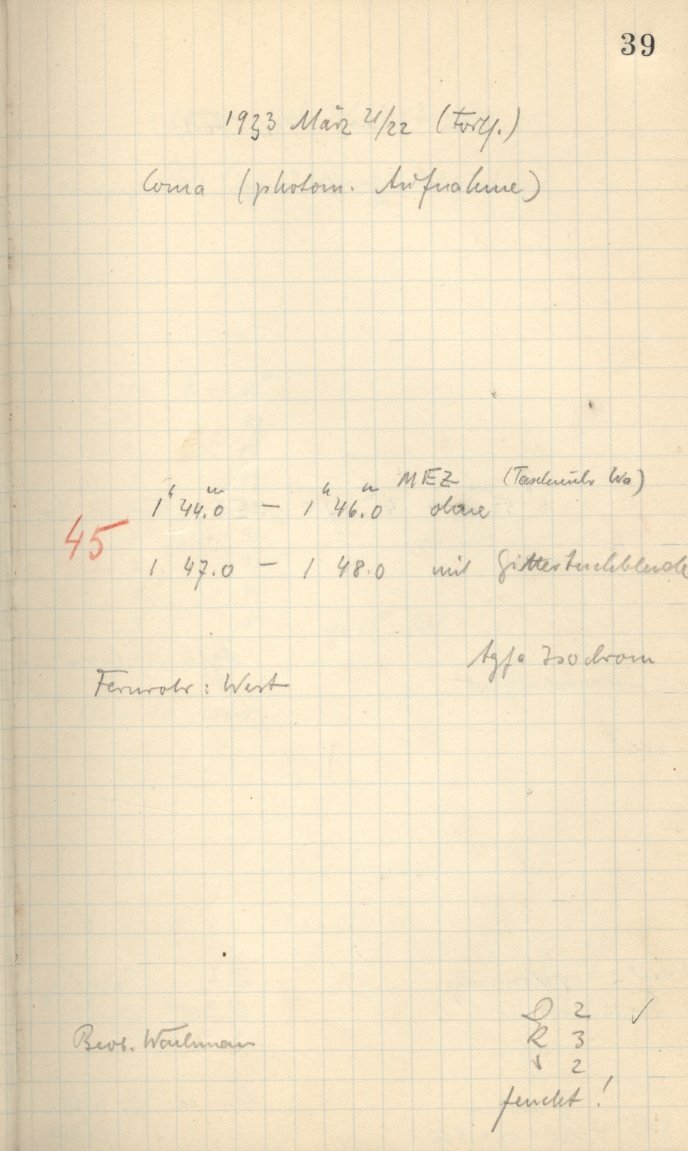 39
1933 März 21/22 (Forts.)
Coma (photom. Aufnahme)
1ʰ 44.ᵐ0 — 1ʰ 46.ᵐ0 MEZ (Taschenuhr Wa)
ohne
45
1 47.0 — 1 48.0 mit Gittertuchblende
Agfa Isochrom
Fernrohr: West
2 ✓
Beob. Wachmann
R 3
2
feucht!